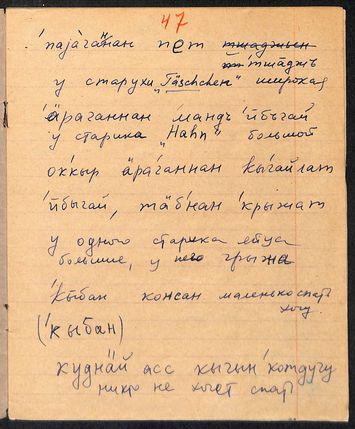 47
'паjáганнан пет тшаджын
тш 'тшäджъ
у старухи „Täschchen" широкая
'ä́рáганнан мандъ 'йбыгай
у старика „Hahn" большой
оккыр äрáганнан кыгайлат
'йбыгай, тäбнан 'крыжат
у одного старика яйца
большие, у него грыжа
'кы̄бан консан маленько спать
хочу.
('кыбан)
куднäй асс кыгын 'котдугу
никто не хочет спать